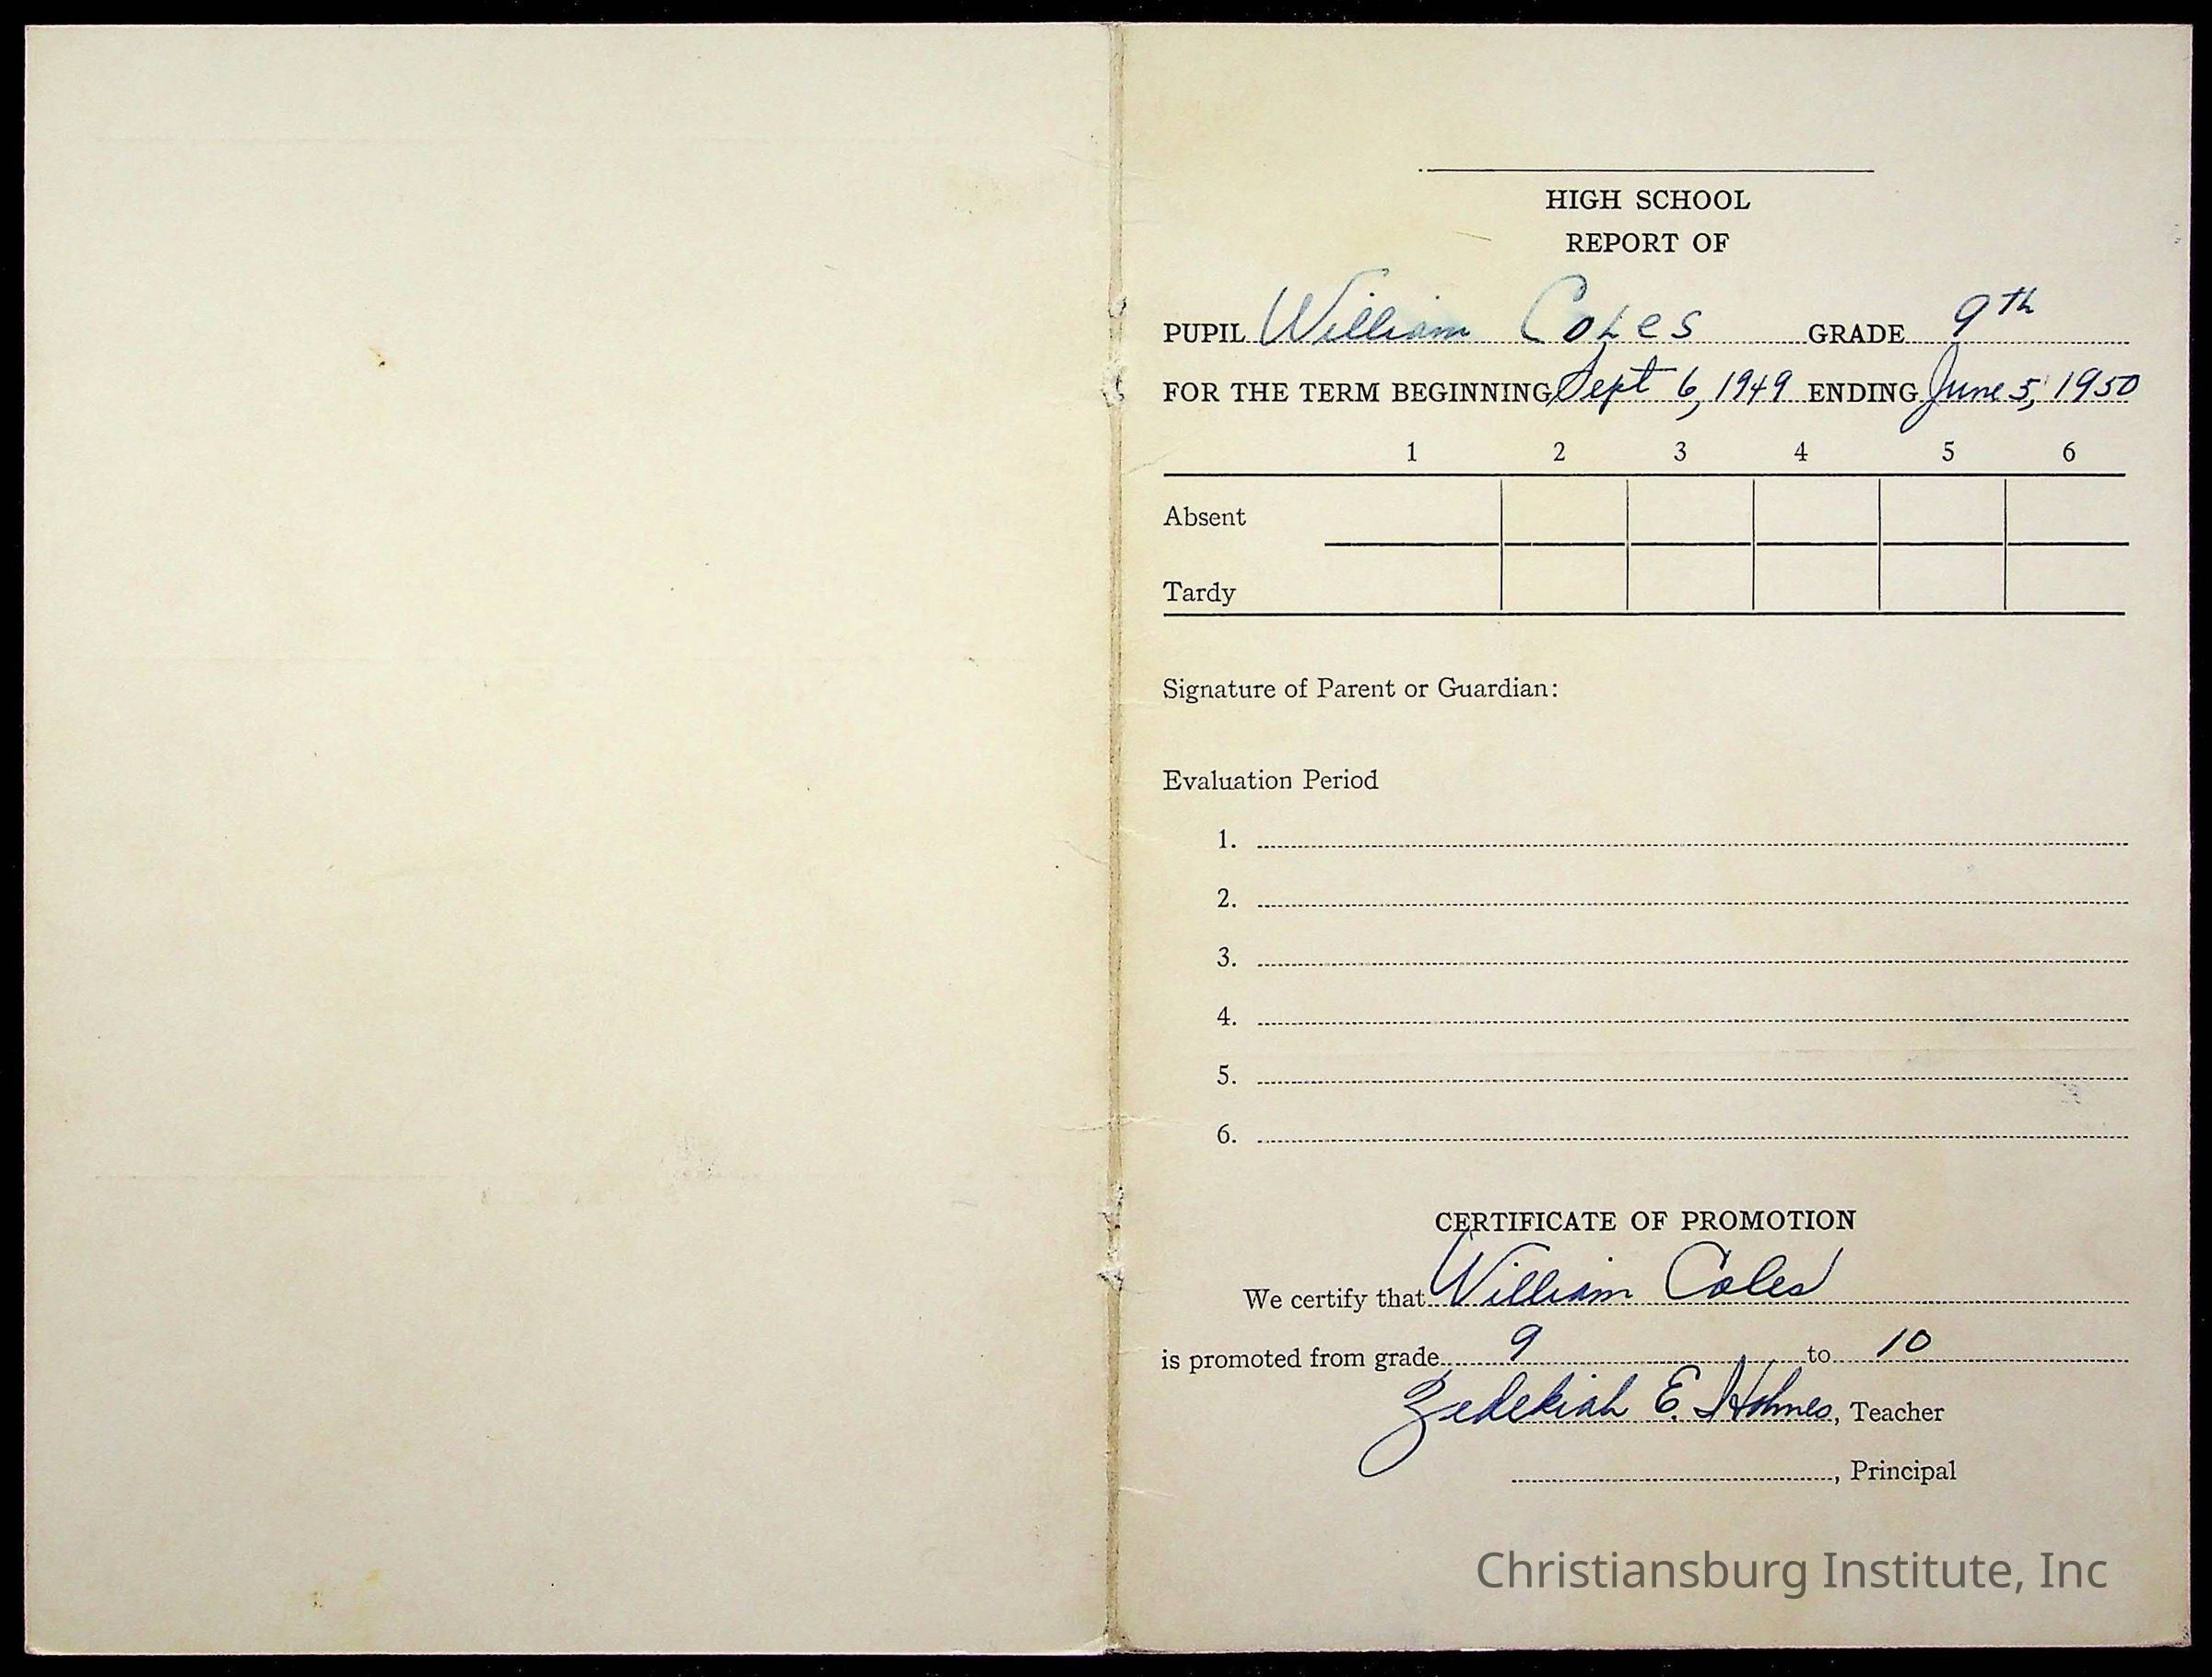 HIGH SCHOOL
REPORT OF
PUPIL William Coles GRADE 9th
FOR THE TERM BEGINNING Sept 6, 1949 ENDING June 5, 1950
1 2 3 4 5 6
Absent
Tardy
Signature of Parent or Guardian:
Evaluation Period
1.
2.
3.
4.
5.
6.
CERTIFICATE OF PROMOTION
We certify that William Coles
is promoted from grade 9 to 10
Zedekiah E. Holmes, Teacher
, Principal
Christiansburg Institute, Inc